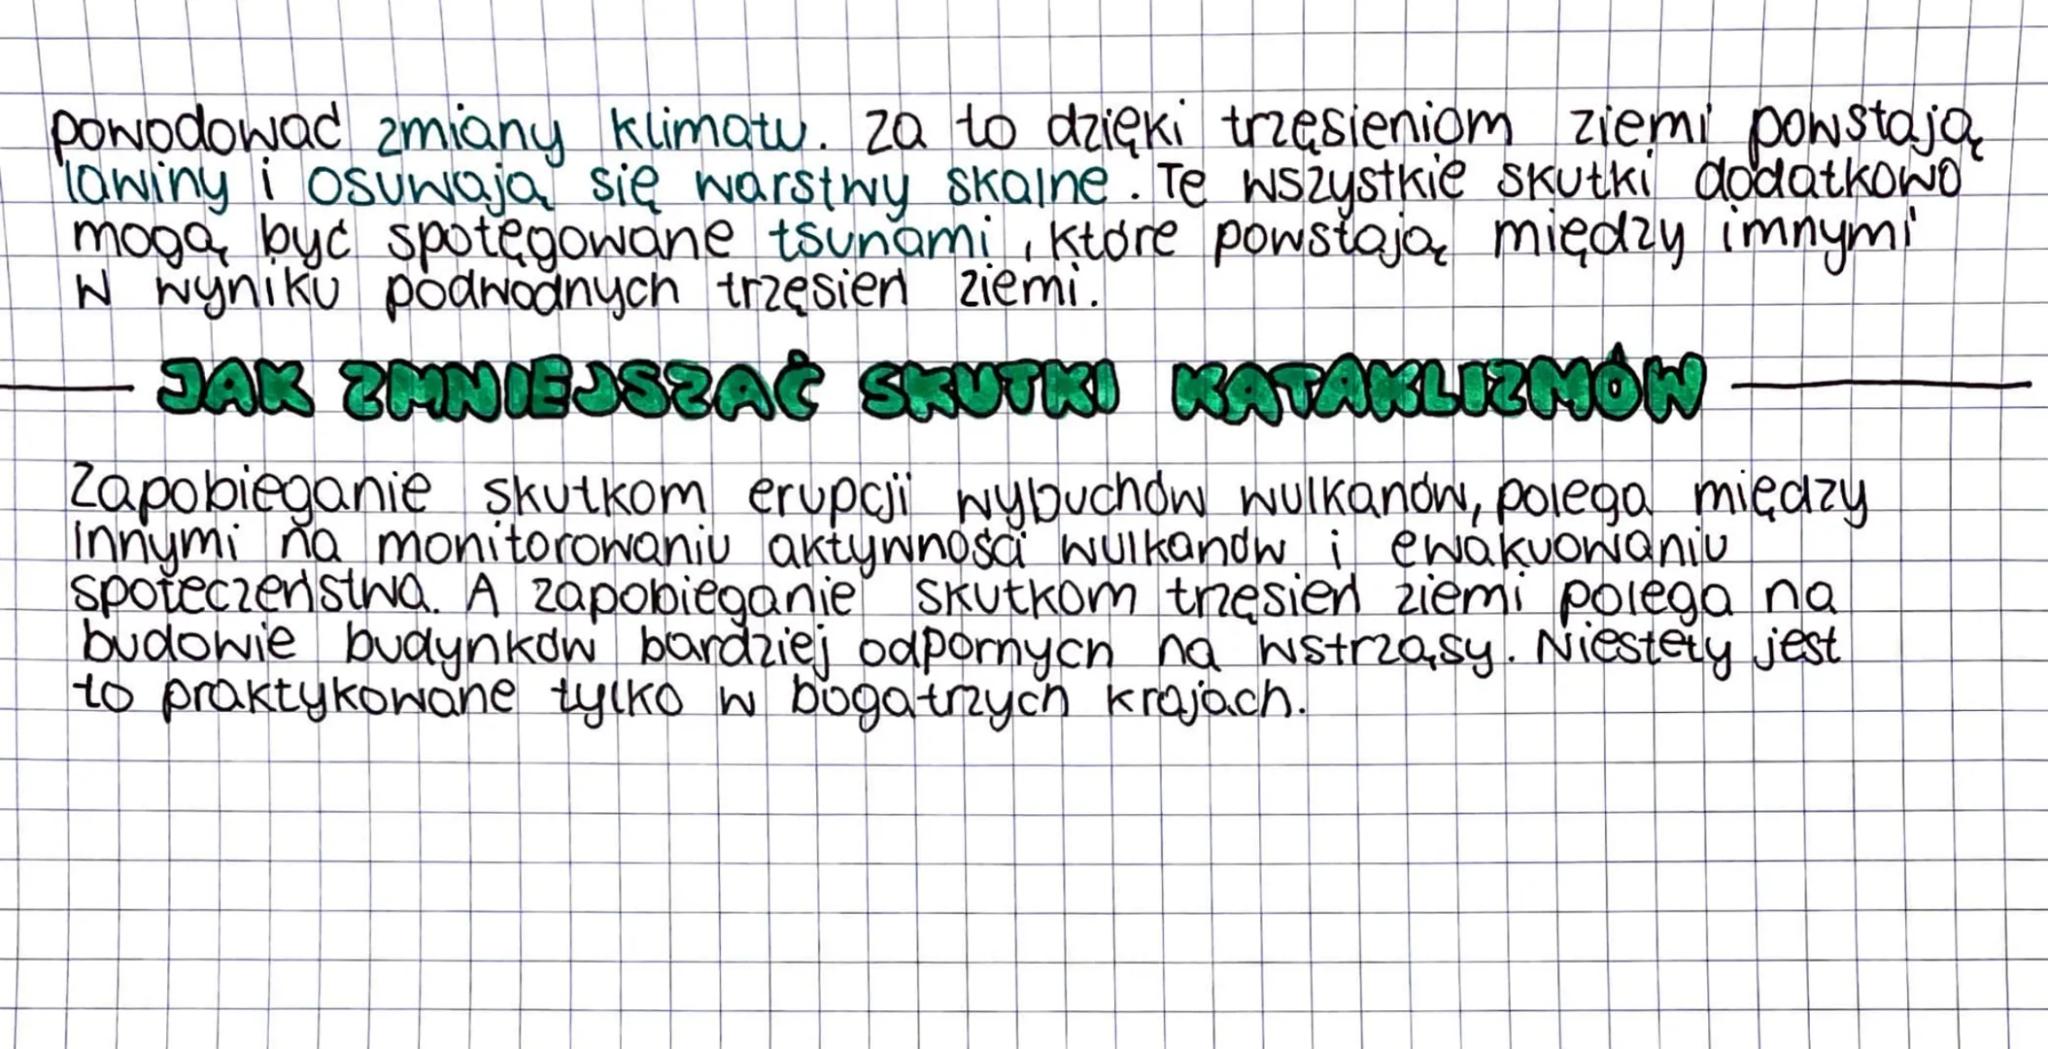 powodować zmiany klimatu. Za to dzięki trzęsieniom ziemi powstają
lawiny i osuwają się warstwy skalne. Te wszystkie skutki dodatkowo
mogą być spotęgowane tsunami, które powstają między imnymi
w wyniku podwodnych trzęsień ziemi.
JAK ZMNIEJSZAĆ SKUTKI KATAKLIZMÓW
Zapobieganie skutkom erupcji wybuchów wulkanów, polega między
innymi na monitorowaniu aktywności wulkanów i ewakuowaniu
społeczeństwa. A zapobieganie skutkom trzęsień ziemi polega na
budowie budynków bardziej odpornych na wstrząsy. Niestety jest
to praktykowane tylko w bogatrzych krajach.